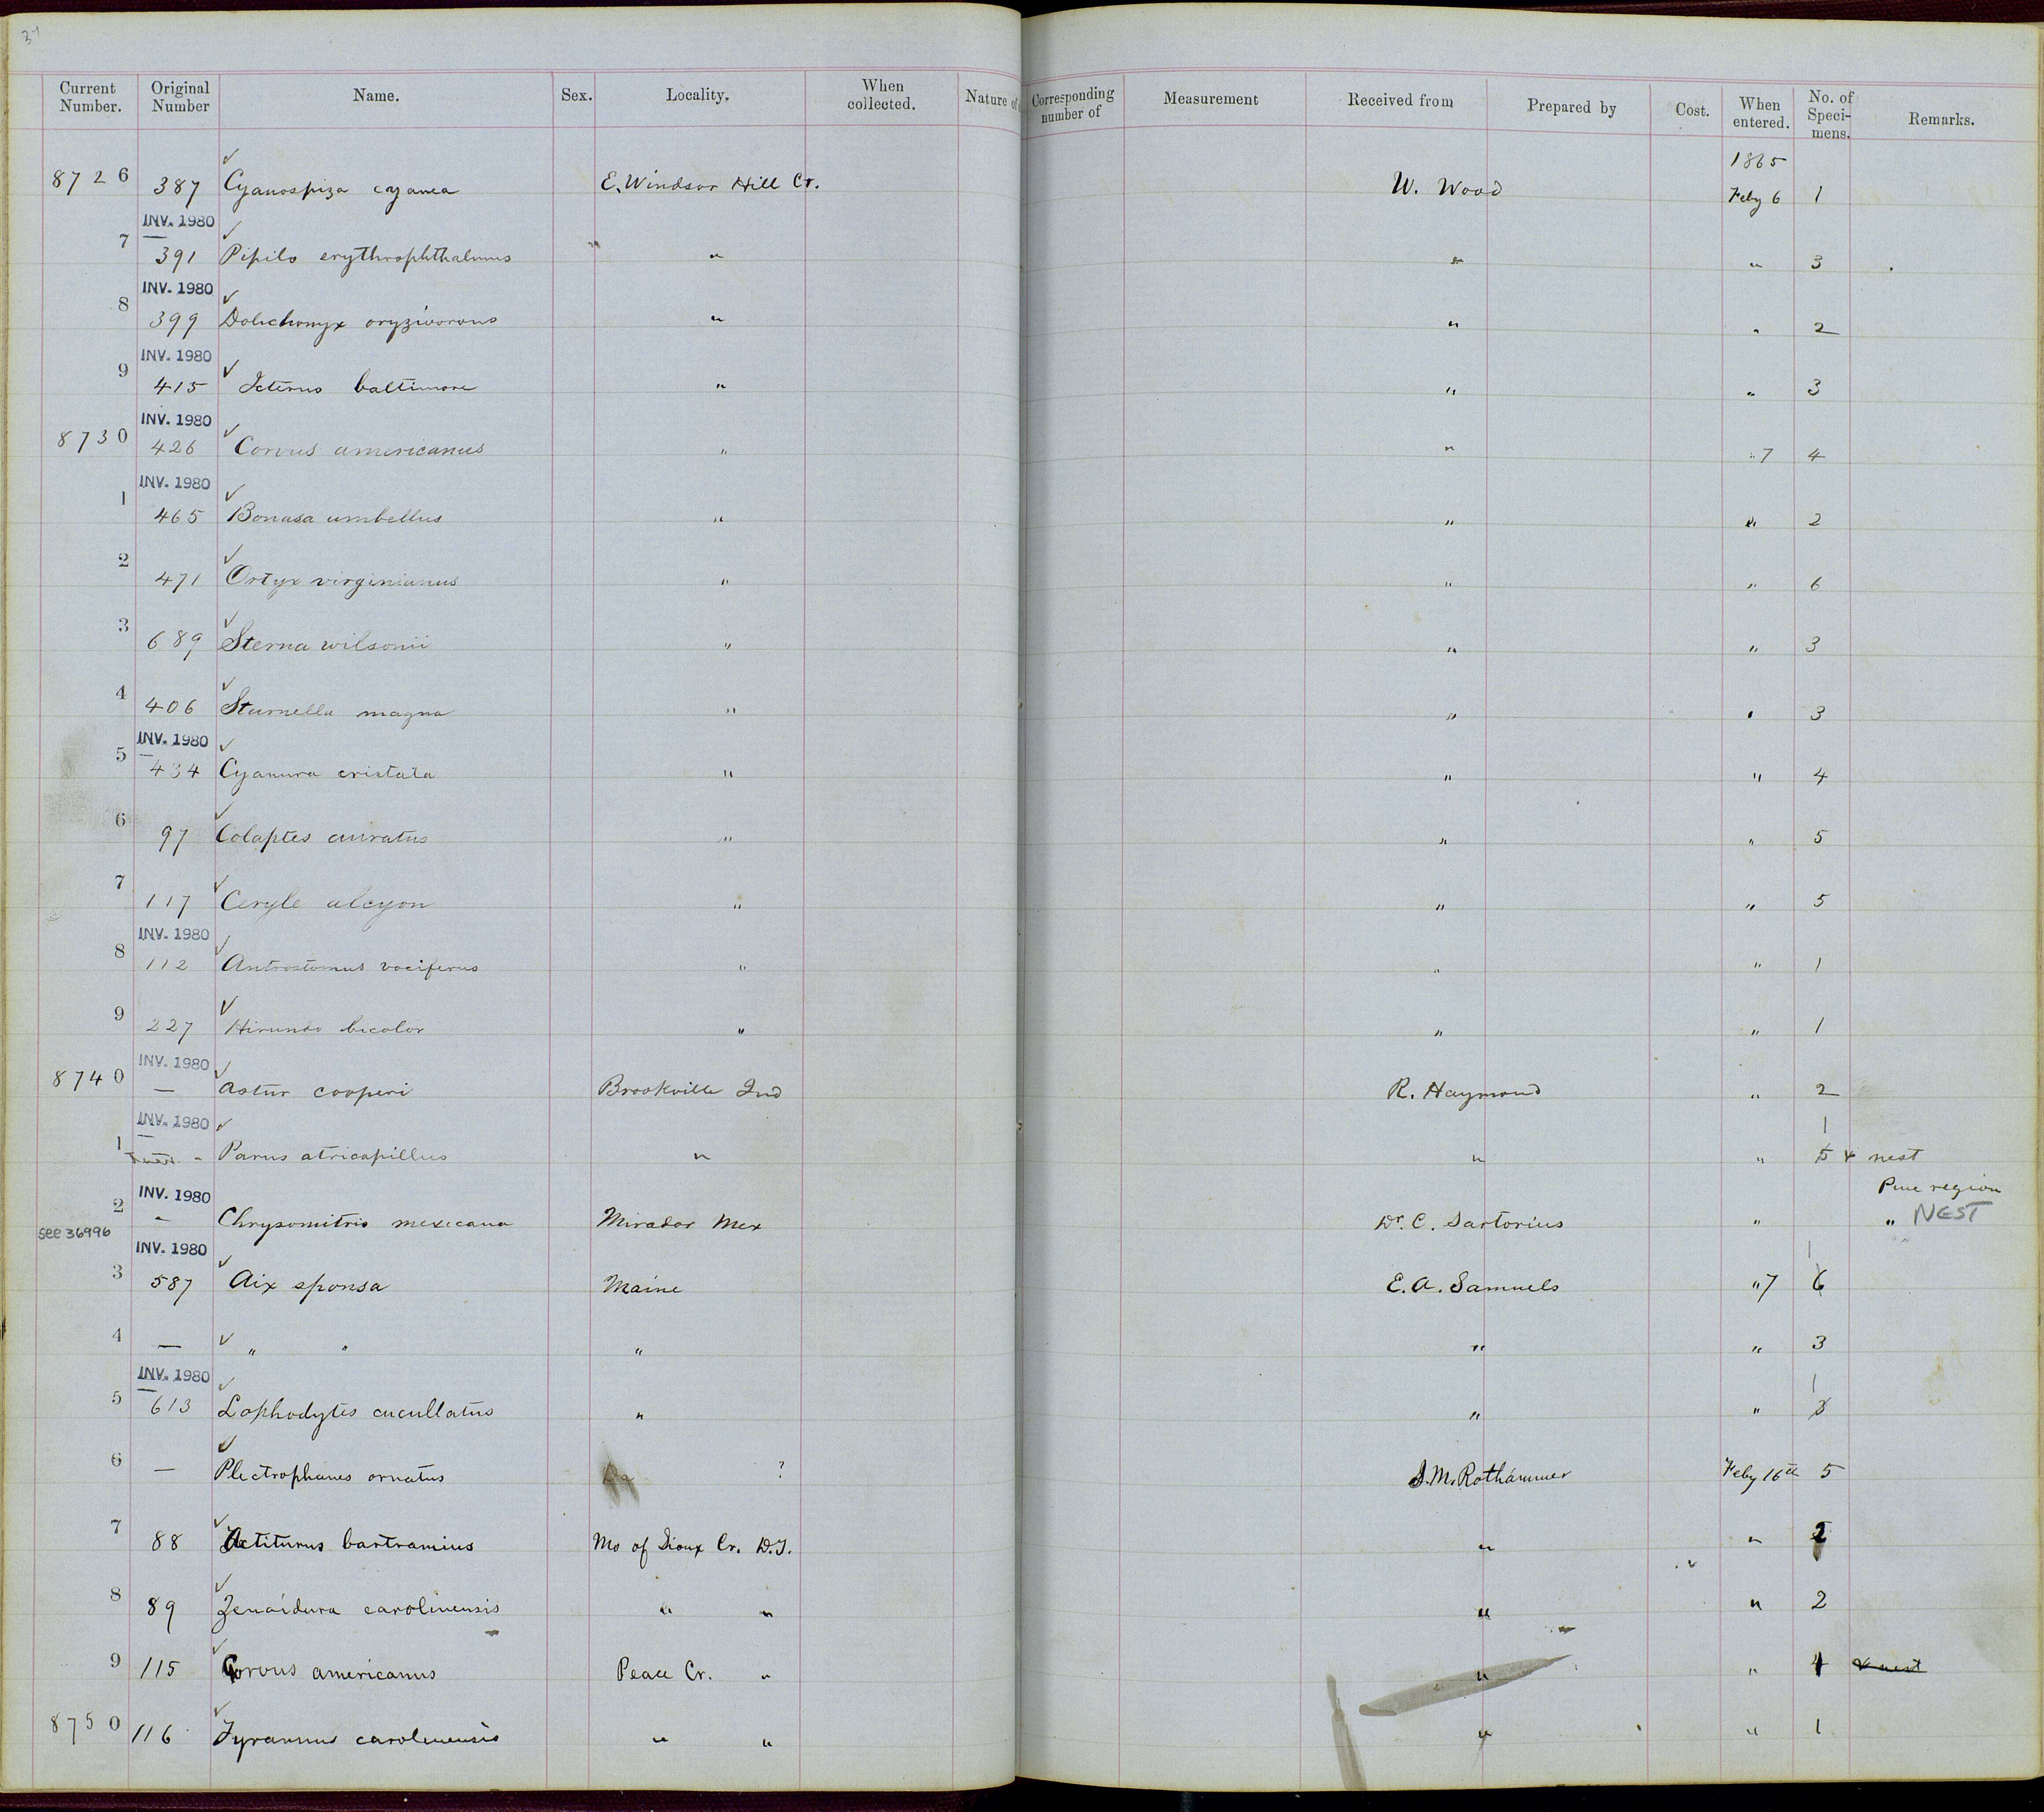 Current Number. Original Number Name. Sex. Locality. When collected. Nature of Corresponding number of Measurement Received from Prepared by Cost. When entered. No. of Speci-mens. Remarks.
1865
8726 387 ✓ Cyanospiza cyanea E. Windsor Hill Ct. W. Wood Feby 6 1
INV. 1980
7 391 ✓ Pipilo erythrophthalmus " " " 3
INV. 1980
8 399 ✓ Dolichonyx oryzivorous " " " 2
INV. 1980
9 415 ✓ Icterus baltimore " " " 3
INV. 1980
8730 426 ✓ Corvus americanus " " " 7 4
INV. 1980
1 465 ✓ Bonasa umbellus " " " 2
2 471 ✓ Ortyx virginianus " " " 6
3 689 ✓ Sterna wilsonii " " " 3
4 406 ✓ Sturnella magna " " " 3
INV. 1980
5 434 ✓ Cyanura cristata " " " 4
6 97 ✓ Colaptes auratus " " " 5
7 117 ✓ Ceryle alcyon " " " 5
INV. 1980
8 112 ✓ Antrostomus vociferus " " " 1
9 227 ✓ Hirundo bicolor " " " 1
INV. 1980
8740 — ✓ Astur cooperi Brookville Ind R. Haymond " 2
INV. 1980 1
1 " ✓ Parus atricapillus " " " 5 & nest
INV. 1980 Pine region
2 " Chrysomitris mexicana Mirador Mex Dr. C. Sartorius " " NEST
see 36996
INV. 1980 1
3 587 ✓ Aix sponsa Maine E. A. Samuels " 7 6
4 — ✓ " " " " " 3
INV. 1980 1
5 613 ✓ Lophodytes cucullatus " " " 3
6 — ✓ Plectrophanes ornatus Da ? S. M. Rothammer Feby 16th 5
7 88 ✓ Actiturus bartramius Mo of Sioux Cr. D.T. " " 2
8 89 ✓ Zenaidura carolinensis " " " " 2
9 115 ✓ Corvus americanus Peace Cr. " " " 4 & nest
8750 116 ✓ Tyrannus carolinensis " " " " 1